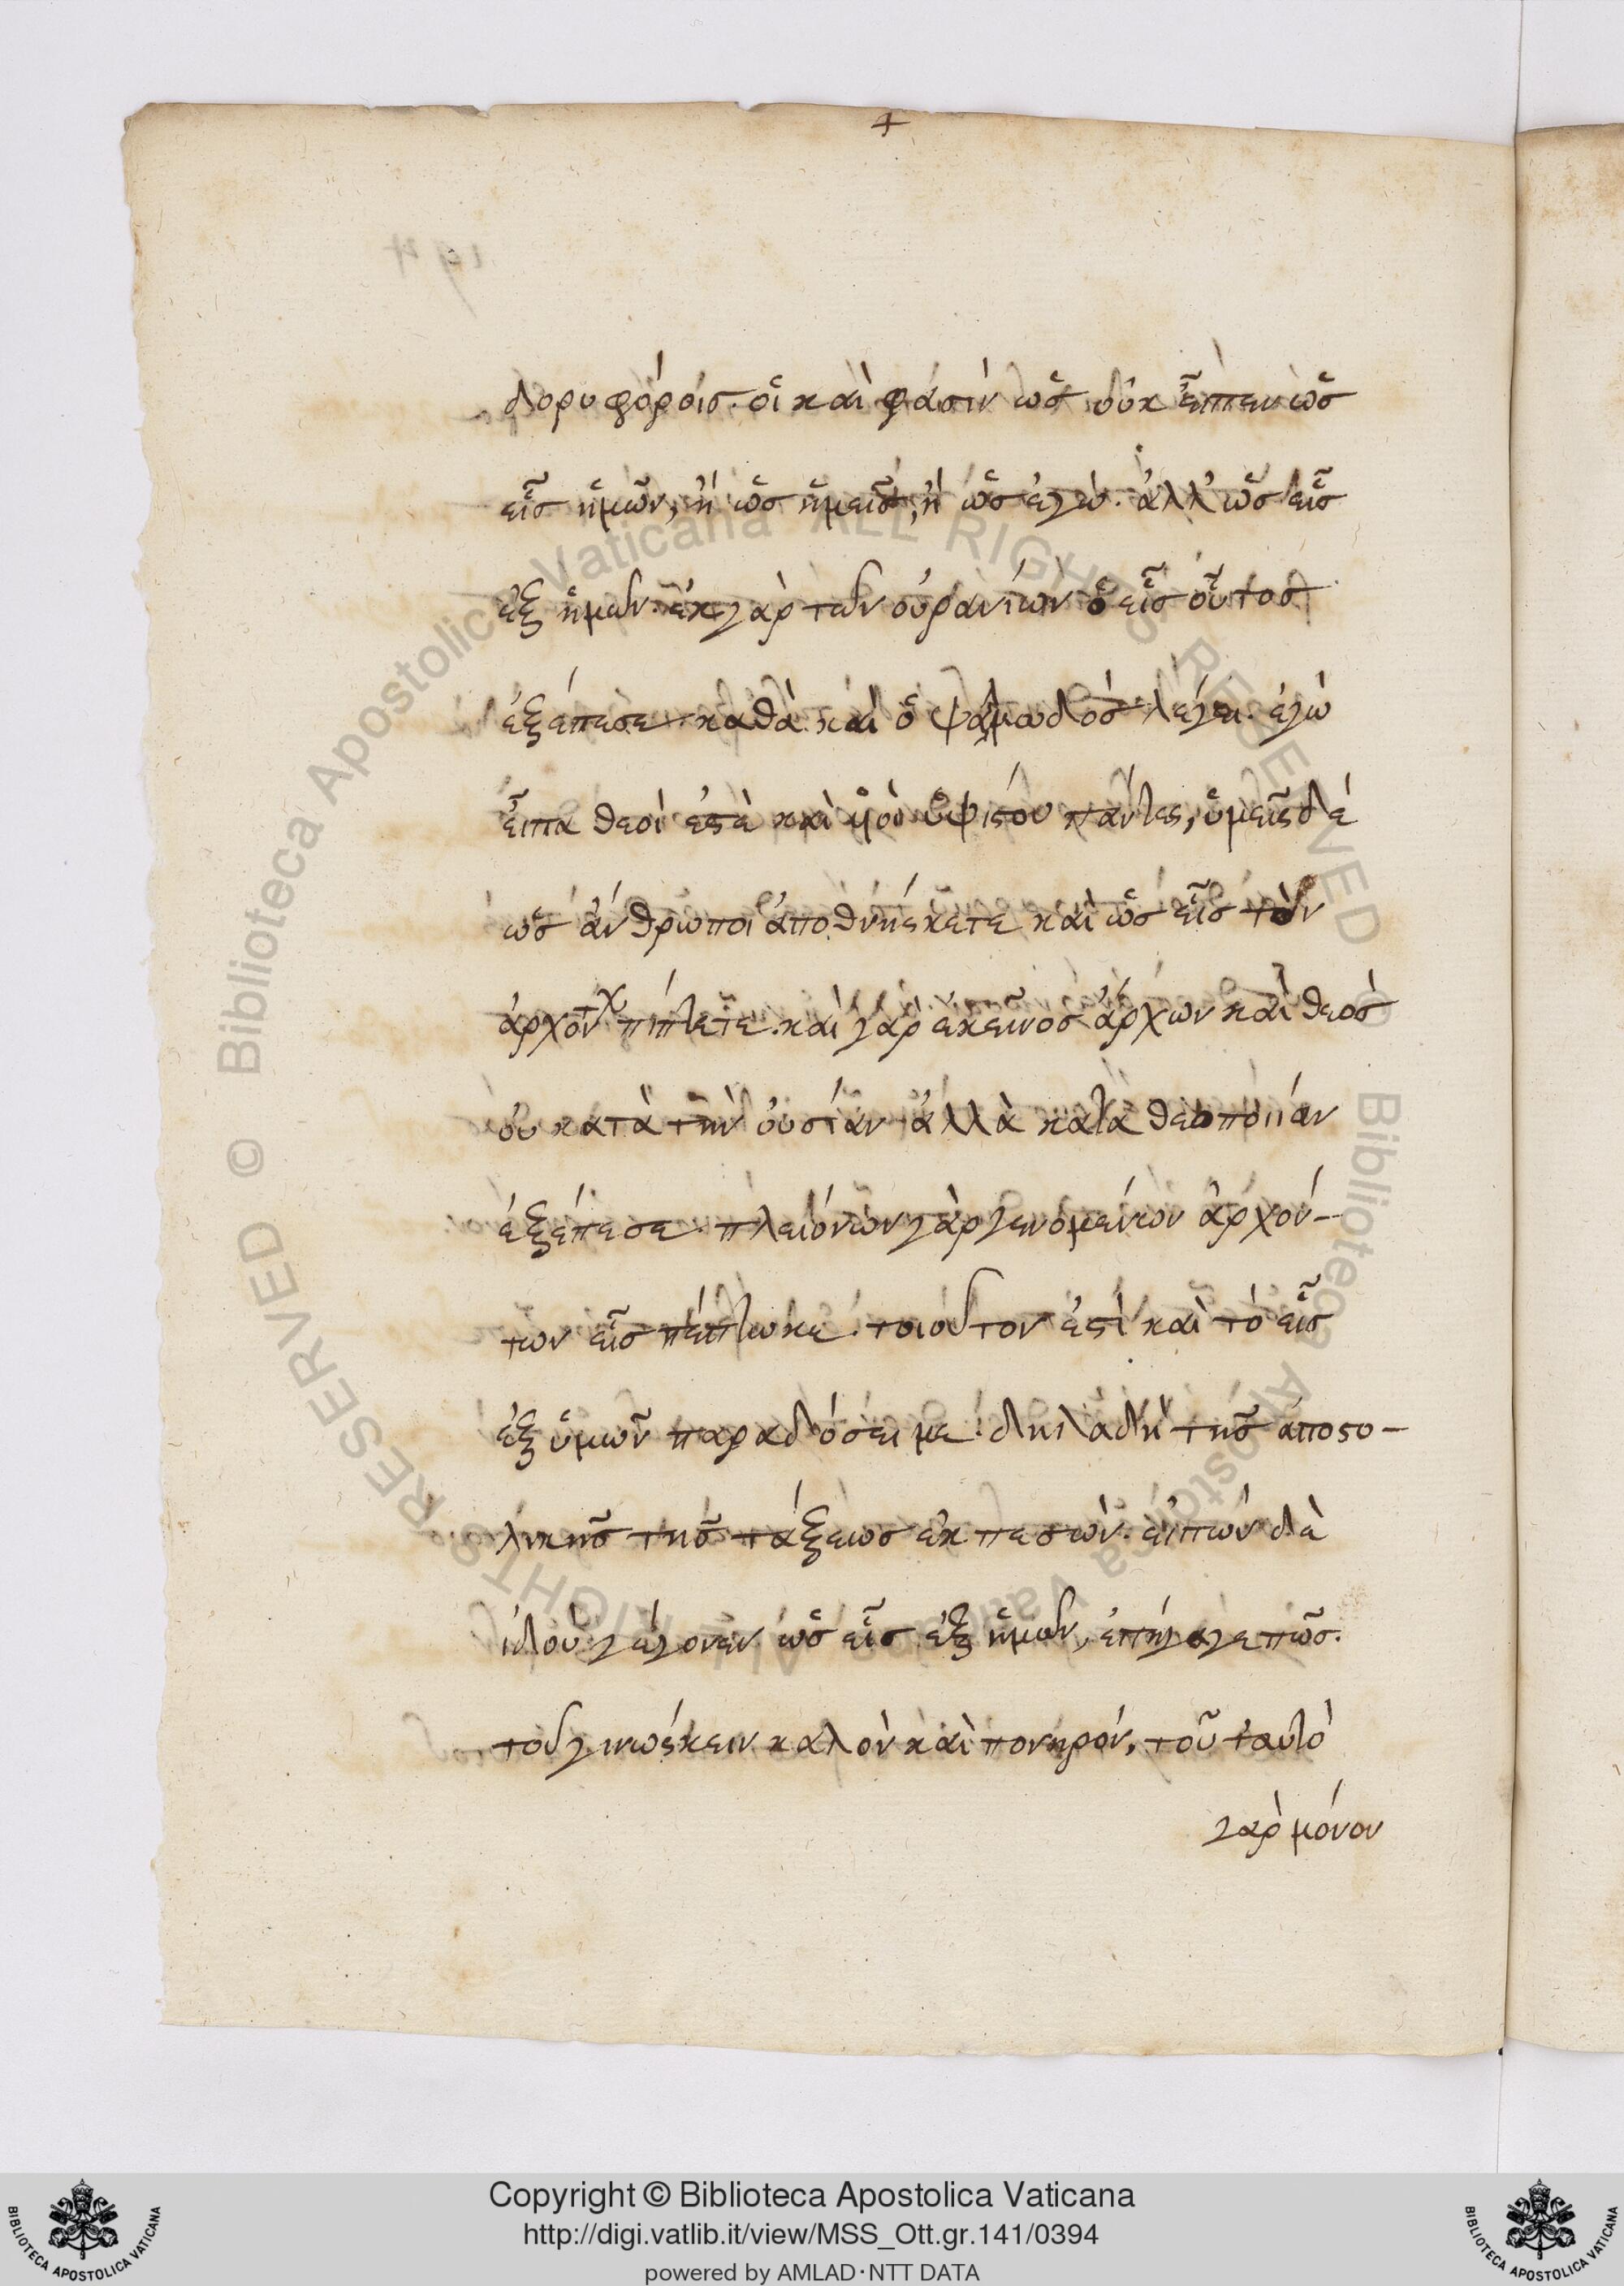 +
δορυφόροις. οἳ καὶ φάσιν ὡς οὐκ εἶπεν ὡς
εἷς ἡμῶν, ἢ ὡς ἡμεῖς, ἢ ὡς ἐγώ. ἀλλ' ὡς εἷς
ἐξ ἡμῶν. ἐκ γὰρ τῶν οὐρανίων ὁ εἷς οὗτος
ἐξέπεσε. καθὰ καὶ ὁ ψαλμωδὸς λέγει. ἐγὼ
εἶπα θεοί ἐστὲ καὶ υἱοὶ ὑψίστου πάντες, ὑμεῖς δὲ
ὡς ἄνθρωποι ἀποθνήσκετε καὶ ὡς εἷς τῶν
ἀρχόντων πίπτετε. καὶ γὰρ ἐκεῖνος ἄρχων καὶ θεὸς
οὐ κατὰ τὴν οὐσίαν ἀλλὰ κατὰ θεοποιίαν
ἐξέπεσε. πλειόνων γὰρ γενομένων ἀρχόν-
των εἷς πέπτωκε. τοιοῦτον ἐστὶ καὶ τὸ εἷς
ἐξ ὑμῶν παραδόσει με. δηλαδὴ τῆς ἀποστο-
λικῆς τῆς τάξεως ἐκπεσών. εἰπὼν δὲ
ἰδοὺ γέγονεν ὡς εἷς ἐξ ἡμῶν, ἐπήγαγε πῶς.
τοῦ γινώσκειν καλὸν καὶ πονηρόν, τοῦ ταυτὸ
γὰρ μόνον
Copyright © Biblioteca Apostolica Vaticana
http://digi.vatlib.it/view/MSS_Ott.gr.141/0394
powered by AMLAD·NTT DATA
BIBLIOTECA APOSTOLICA VATICANA
BIBLIOTECA APOSTOLICA VATICANA
© Biblioteca Apostolica Vaticana ALL RIGHTS RESERVED
© Biblioteca Apostolica Vaticana ALL RIGHTS RESERVED